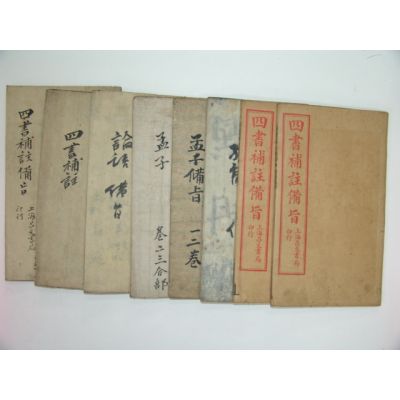 四書補註備旨
上海昌文書局
印行
四書補註備旨
上海昌文書局
印行
孟子備旨
一二卷
孟子
卷二三合部
論語 備旨
四書補註
四書補註備旨
印行